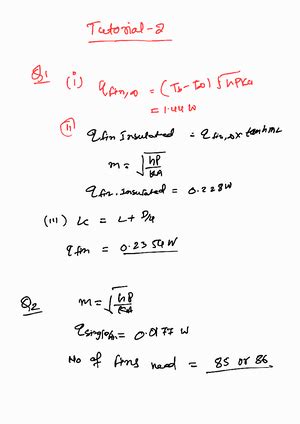 Tutorial-2
Q.1 (i) q fin,∞ = (Tb - T∞) √hPKA
= 1.44 W
(ii) q fin Insulated = q fin,∞ x tanh mL
m = √hP/KA
q fin.insulated = 0.228W
(iii) Lc = L + D/4
q fin = 0.2354 W
Q.2 m = √hP/KA
q single fin = 0.0177 W
No of fins need = 85 or 86